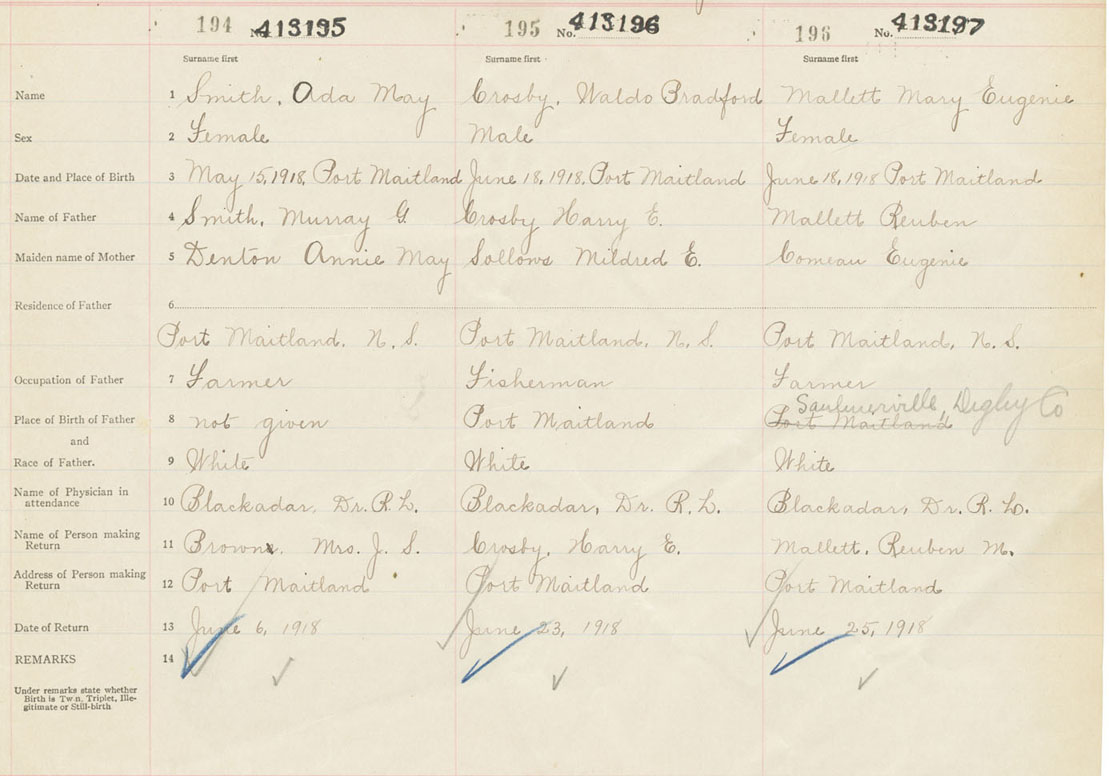 194 No. 413195 195 No. 413196 196 No. 413197
Surname first Surname first Surname first
Name 1 Smith, Ada May Crosby, Waldo Bradford Mallett Mary Eugenie
Sex 2 Female Male Female
Date and Place of Birth 3 May 15, 1918, Port Maitland June 18, 1918, Port Maitland June 18, 1918 Port Maitland
Name of Father 4 Smith, Murray G. Crosby Harry E. Mallett Reuben
Maiden name of Mother 5 Denton Annie May Sollows Mildred E. Comeau Eugenie
Residence of Father 6
Port Maitland, N. S. Port Maitland, N. S. Port Maitland, N. S.
Occupation of Father 7 Farmer Fisherman Farmer
Saulnerville, Digby Co
Place of Birth of Father 8 not given Port Maitland Port Maitland
and
Race of Father. 9 White White White
Name of Physician in
attendance 10 Blackadar, Dr. R. L. Blackadar, Dr. R. L. Blackadar, Dr. R. L.
Name of Person making
Return 11 Browne, Mrs. J. S. Crosby, Harry E. Mallett, Reuben M.
Address of Person making
Return 12 Port Maitland Port Maitland Port Maitland
Date of Return 13 June 6, 1918 June 23, 1918 June 25, 1918
REMARKS 14
Under remarks state whether
Birth is Twin, Triplet, Ille-
gitimate or Still-birth